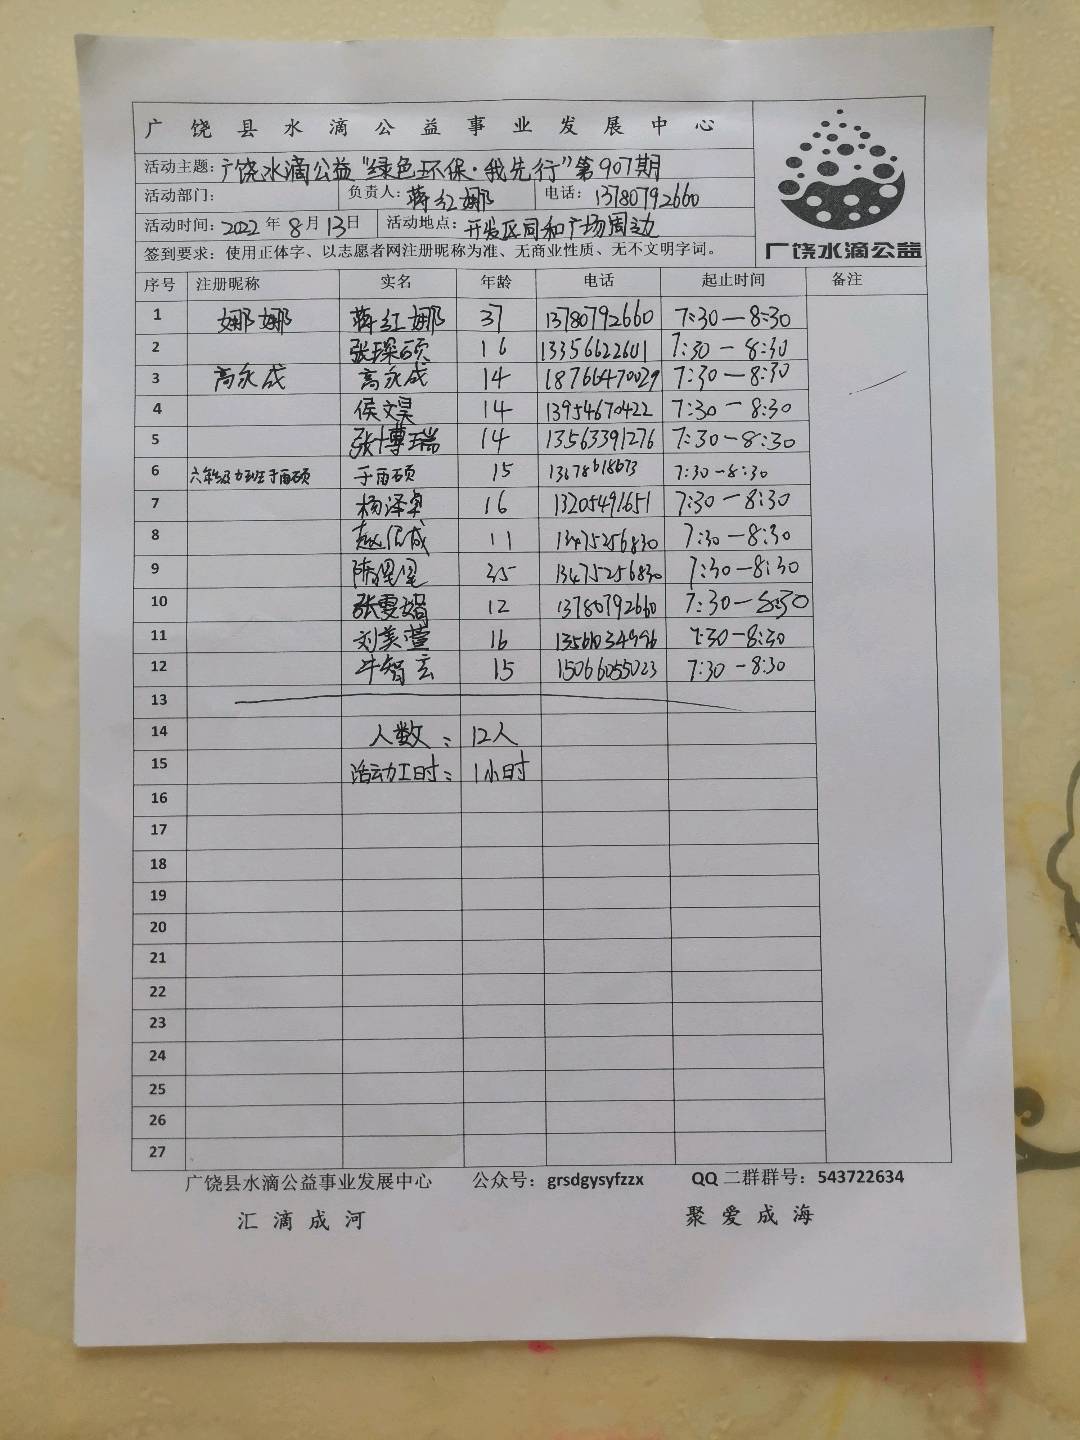 广饶县水滴公益事业发展中心
活动主题：广饶水滴公益“绿色环保·我先行”第907期
活动部门： 负责人：蒋红娜 电话：13780792660
活动时间：2022年8月13日 活动地点：开发区同和广场周边
签到要求：使用正体字、以志愿者网注册昵称为准、无商业性质、无不文明字词。
广饶水滴公益
序号 注册昵称 实名 年龄 电话 起止时间 备注
1 娜娜 蒋红娜 37 13780792660 7:30—8:30
2 张琛硕 16 13356622601 7:30—8:30
3 高永成 高永成 14 18766470029 7:30—8:30
4 侯文昊 14 13954670422 7:30—8:30
5 张博瑞 14 13563391276 7:30—8:30
6 于雨硕 15 13678618673 7:30—8:30
7 杨泽卓 16 13205491651 7:30—8:30
8 赵侃成 11 13475256830 7:30—8:30
9 35 13475256830 7:30—8:30
10 张雯 12 13780792660 7:30—8:30
11 刘美萱 16 7:30—8:30
12 牛智玄 15 15066055023 7:30—8:30
13
14 人数：12人
15 活动工时：1小时
16
17
18
19
20
21
22
23
24
25
26
27
广饶县水滴公益事业发展中心 公众号：grsdgysyfzzx QQ二群群号：543722634
汇滴成河 聚爱成海